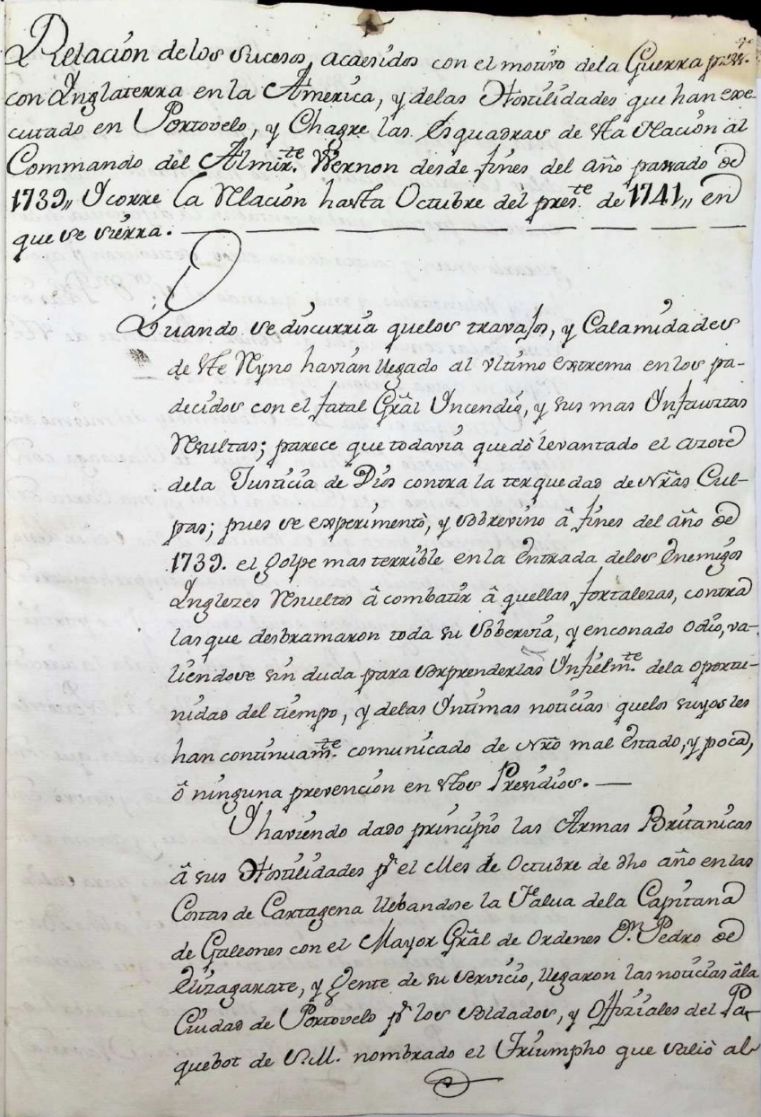 Relación de los sucesos, acaesidos con el motivo dela Guerra
con Ynglaterra en la America, y delas Hostilidades que han exe-
cutado en Portovelo, y Chagre las Esquadras de esta Nación al
Commando del Almir.te Wernon desde fines del año passado de
1739,, Ycorre la Relación hasta Octubre del pres.te de 1741,, en
que se sierra.
Quando se discurria quelos travajos, y Calamidades
de este Reyno havian llegado al ultimo extremo en los pa-
decidos con el fatal Grâl Yncendio, y sus mas Ynfaustas
Resultas; parece que todavia quedò levantado el azote
dela Justicia de Dios contra la terquedad de nrâs Cul-
pas; pues se experimentò, y sobrevino â fines del año de
1739. el golpe mas terrible en la Entrada delos Enemigos
Yngleses Resueltos â combatir â quellas fortalezas, contra
las que desbramaron toda su Sobervia, y enconado Odio, va-
liendose sin duda para sorprenderlas Ynfielm.te dela oportu-
nidad del tiempo, y delas Yntimas noticias quelos suyos les
han continuam.te comunicado de nrô mal Estado, y poca,
ô ninguna prevención en estos Presidios.
Y haviendo dado principio las Armas Britanicas
â sus Hostilidades pr el Mes de Octubre de dho año en las
Costas de Cartagena llebandose la Falua dela Capitana
de Galeones con el Mayor Grâl de Ordenes Dn Pedro de
Elizagarate, y Gente de su servicio, llegaron las noticias âla
Ciudad de Portovelo pr los soldados, y Officiales del Pa-
quebot de S.M. nombrado el Triumpho que saliò al